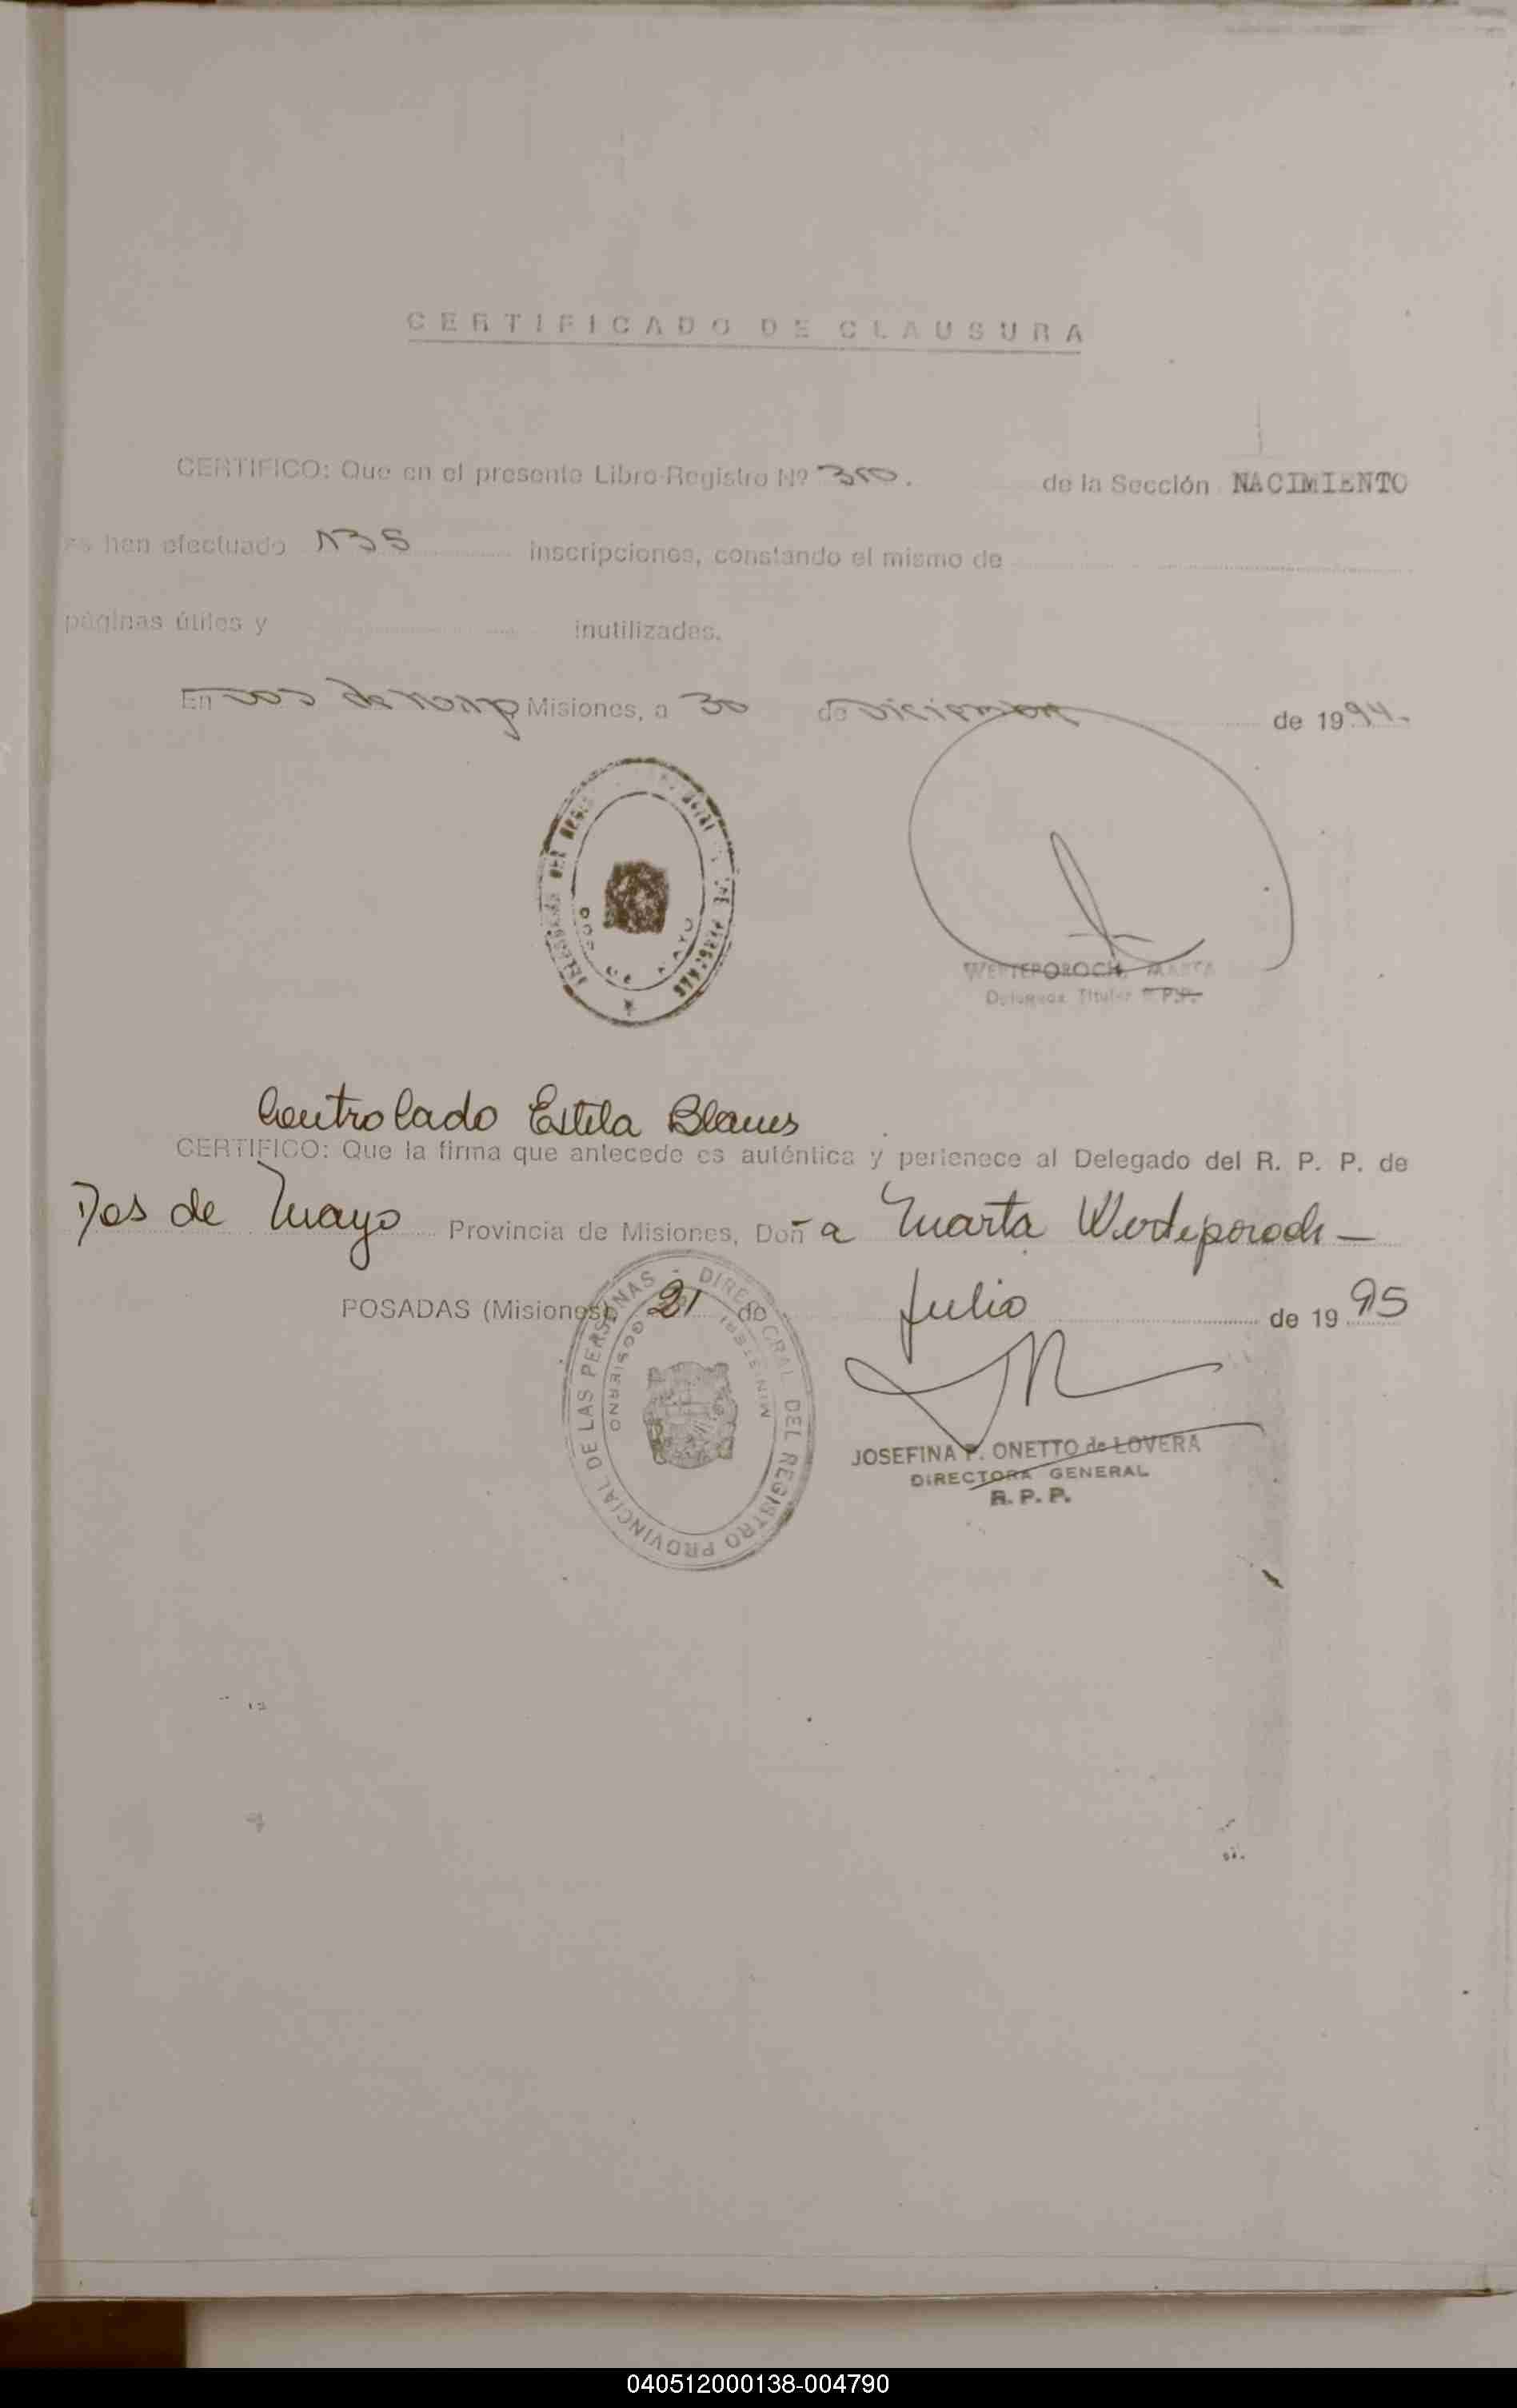 CERTIFICADO DE CLAUSURA
CERTIFICO: Que en el presente Libro-Registro Nº 350. de la Sección NACIMIENTO
se han efectuado 135 inscripciones, constando el mismo de
páginas útiles y inutilizadas.
En Dos de Mayo Misiones, a 30 de Diciembre de 1994.
DOS DE MAYO
WERTEPOROCH, MARTA
Delegada Titular R.P.P.
Controlado Estela Blanes
CERTIFICO: Que la firma que antecede es auténtica y pertenece al Delegado del R. P. P. de
Dos de Mayo Provincia de Misiones, Doña Marta Werteporoch —
POSADAS (Misiones) 21 de Julio de 1995
DIREC. GRAL. DEL REGISTRO PROVINCIAL DE LAS PERSONAS
MINISTERIO GOBIERNO
JOSEFINA P. ONETTO de LOVERA
DIRECTORA GENERAL
R. P. P.
040512000138-004790